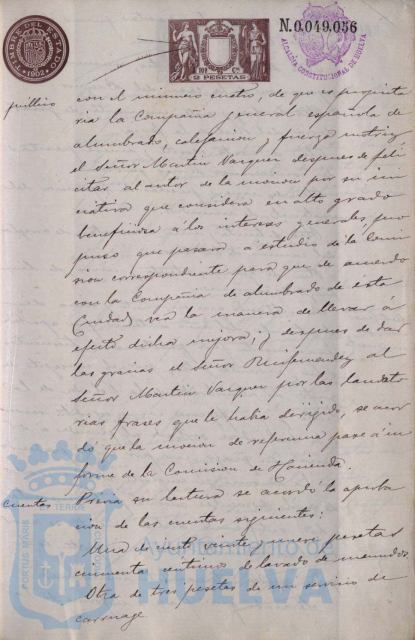 TIMBRE DEL ESTADO
1902
2 PESETAS
N.0.049.056
ALCALDÍA CONSTITUCIONAL DE HUELVA
con el número cuatro, de que es propieta
ria la Compañia general española de
alumbrado, calefaccion y fuerza motriz
el Señor Martin Vazquez despues de feli
citar al autor de la mocion por su ini
ciativa que considera en alto grado
beneficiosa á los intereses generales, pro
puso que pasara á estudio de la Comi
sion correspondiente para que de acuerdo
con la Compañia de alumbrado de esta
Ciudad, vea la manera de llevar á
efecto dicha mejora; y despues de dar
las gracias el Señor al
Señor Martin Vazquez por las laudato
rias frases que le habia dirigido, se acor
dó que la mocion de referencia pase á in
forme de la Comision de Hacienda.
Cuentas
Previa su lectura se acordó la aproba
cion de las cuentas siguientes:
Una de veinte y nueve pesetas
cincuenta centimos de lavado de menudos.
Otra de tres pesetas de un servicio de
carruage
PORTUS MARIS
TERRA
Ayuntamiento de
HUELVA